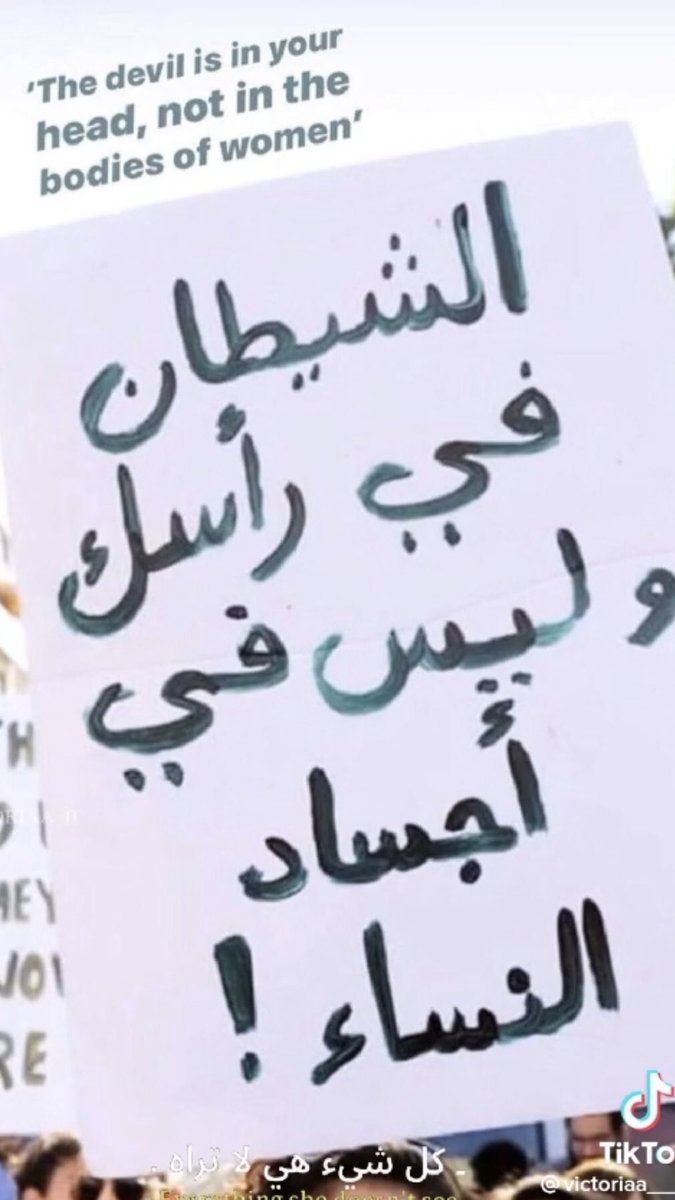 'The devil is in your
head, not in the
bodies of women'
الشيطان
في رأسك
وليس في
أجساد
النساء !
RE
- كل شيء هي لا تراه -
Everything she doesn't see
TikTo
@victoriaa__